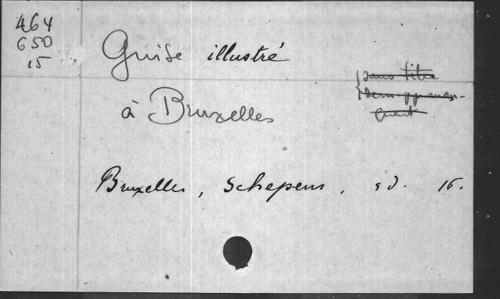 464
650
15
Guide illustré
à Bruxelles
sans titre
dern pp man-
quent
Bruxelles, Schepens, sd. 16.